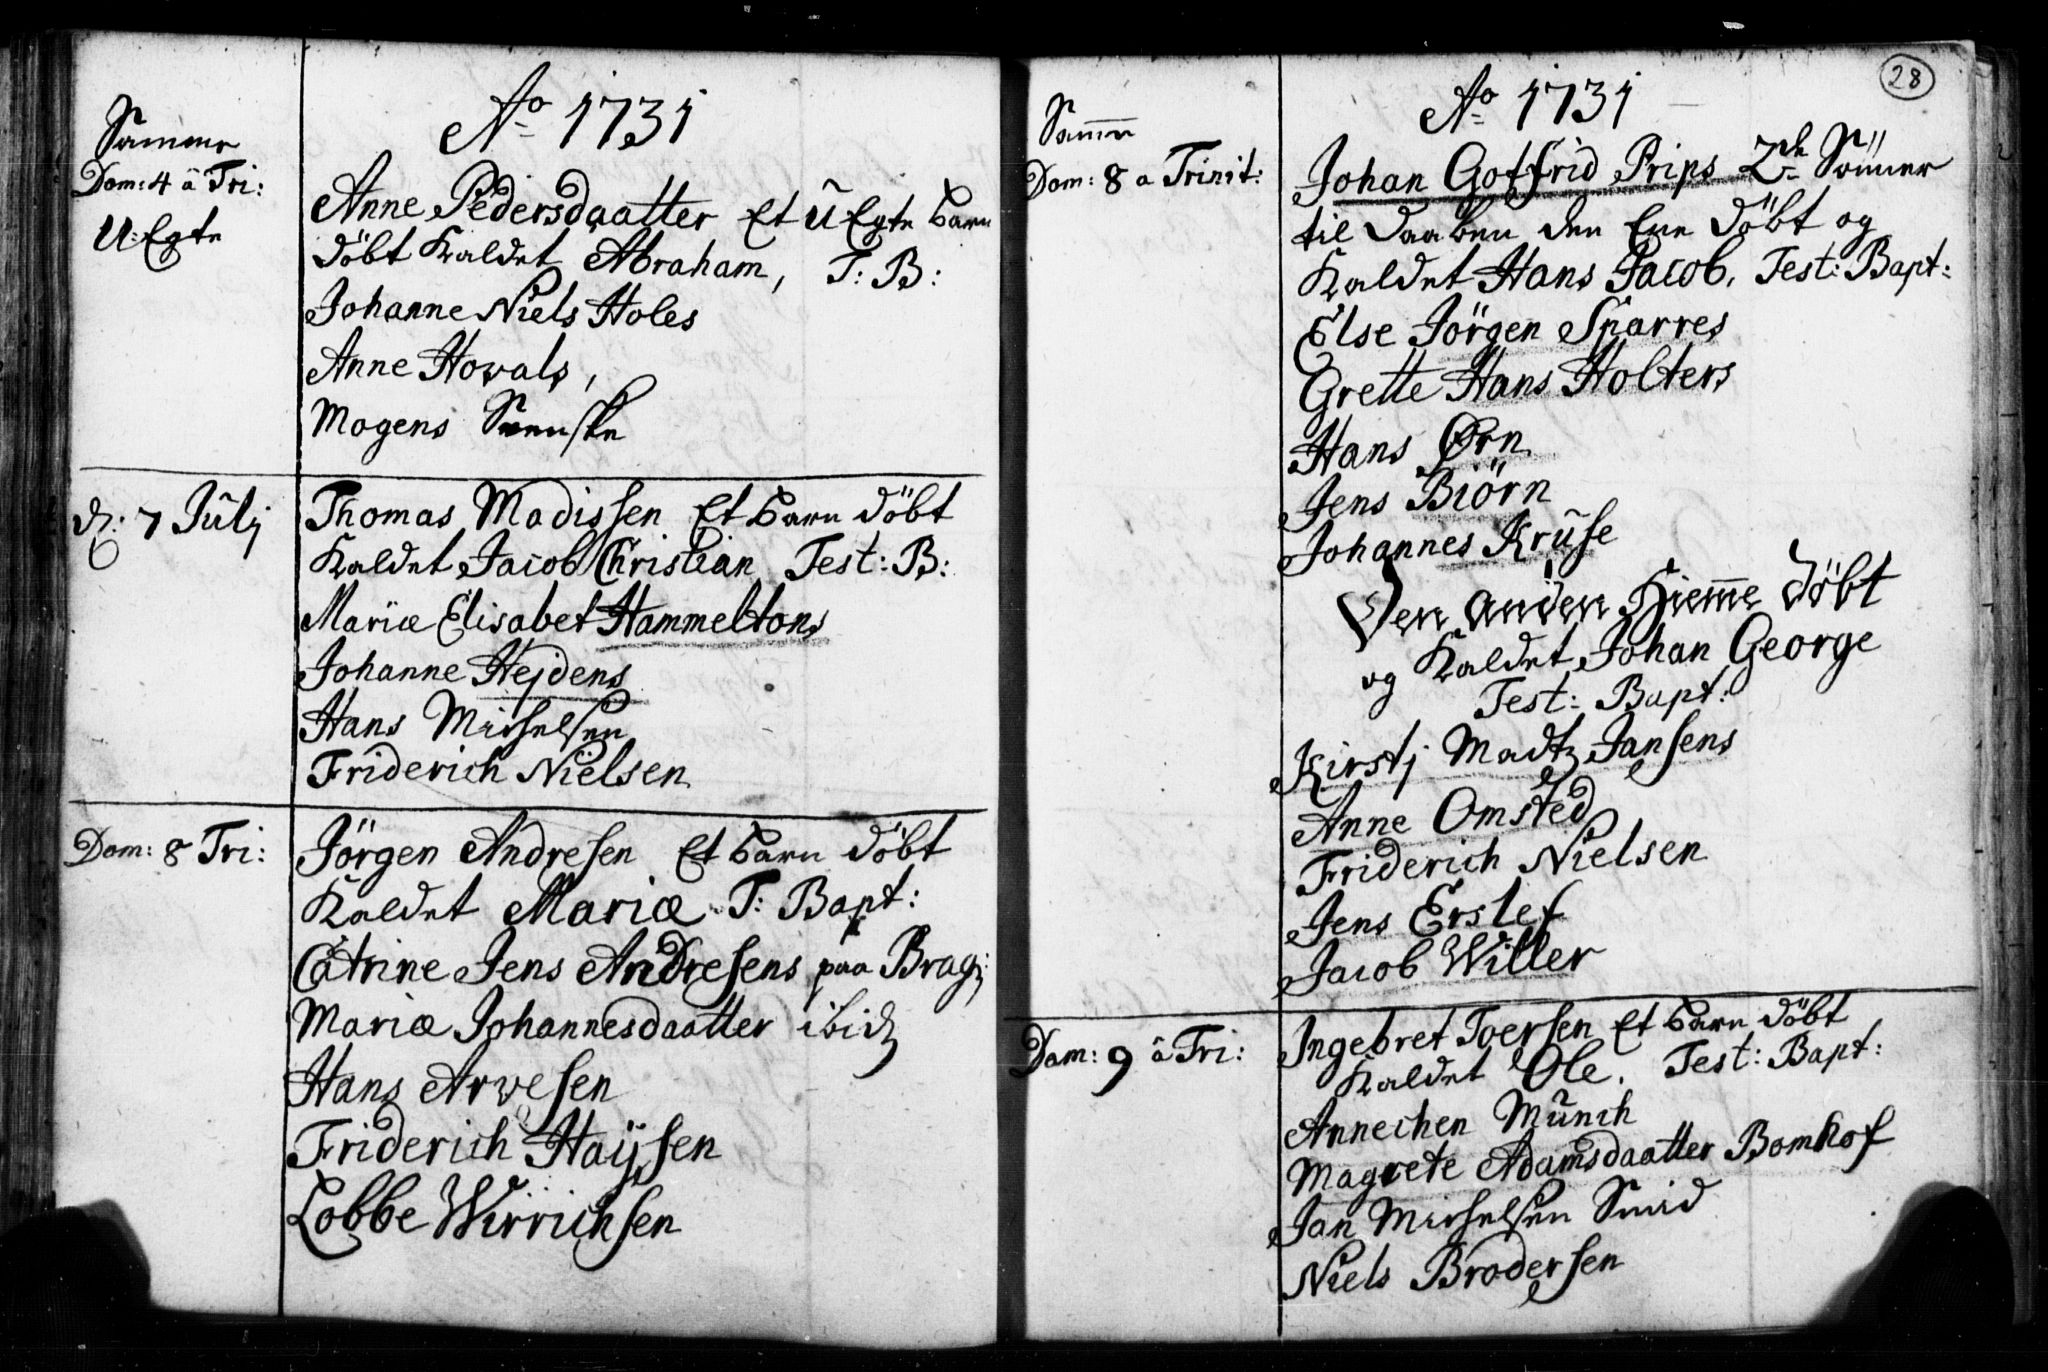 Ao 1731
Samme
Dom: 4 â Tri:
U:Egte
Anne Pedersdaatter Et U Egte barn
döbt Kaldet Abraham, T: B:
Johanne Niels Holes
Anne Howals,
Mogens Svenske
d: 7 Julj
Thomas Madissen Et barn döbt
Kaldet Jacob Christian Test: B:
Mariæ Elisabet Hammeltons
Johanne Hejdens
Hans Michelsen
Friderich Nielsen
Dom: 8 Tri:
Jörgen Andresen Et barn döbt
Kaldet Mariæ T: Bapt:
Catrine Jens Andresens paa Brag:
Mariæ Johannesdaatter ibid
Hans Arvesen
Friderich Haijsen
Lobbe Wirrichsen
28
Ao 1731
Samm
Dom: 8 a Trinit:
Johan Gotfrid Prips 2de Sönner
til Daaben den Ene döbt og
Kaldet Hans Jacob. Test: Bapt:
Else Jörgen Sparres
Grette Hans Holters
Hans Ørn
Jens Biörn
Johannes Kruse
Den anden Hiemme döbt
og Kaldet Johan George
Test: Bapt:
Kirstj Madtz Jansens
Anne Omsted
Friderich Nielsen
Jens Erslef
Jacob Willer
Dom: 9 â Tri:
Ingebret Toersen Et barn döbt
Kaldet Ole. Test: Bapt:
Annichen Munch
Magrete Adamsdaatter Bomhof
Jan Michelsen Smid
Niels Brodersen